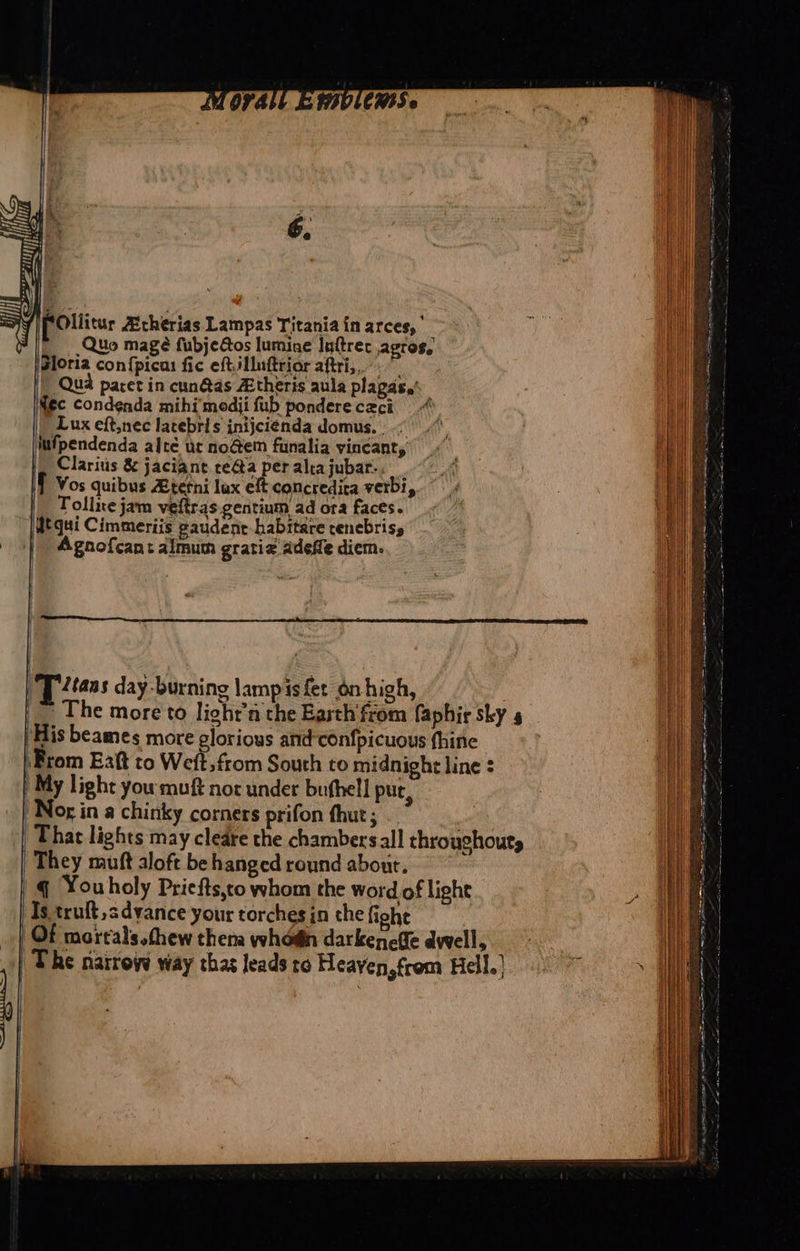 Morall Emblems.
6.
Ollitur Ætherias Lampas Titania in arces,
Quo magè ſubjectos lumine luſtret agros.
Gloria conſpicui ſic eſt illuſtrior aſtri,
Quà patet in cunctas Ætheris aula plagas.
Nec condenda mihi modii ſub pondere cæci
Lux eſt, nec latebris inijcienda domus.
Suſpendenda altè ut noctem funalia vincant,
Clariùs & jaciant tecta per alta jubar.
¶ Vos quibus Æterni lux eſt concredita verbi,
Tollite jam veſtras gentium ad ora faces.
Atqui Cimmeriis gaudent habitare tenebris,
Agnoſcant almum gratiæ adeſſe diem.
Titans day-burning lamp is ſet on high,
The more to light'n the Earth from ſaphir sky s
His beames more glorious and conſpicuous ſhine
From Eaſt to Weſt, from South to midnight line :
My light you muſt not under buſhell put,
Nor in a chinky corners priſon ſhut;
That lights may cleare the chambers all throughout,
They muſt aloft be hanged round about.
¶ You holy Prieſts, to whom the word of light
Is truſt, advance your torches in the ſight
Of mortals. ſhew them whom darkeneſſe dwell,
The narrow way that leads to Heaven, from Hell.